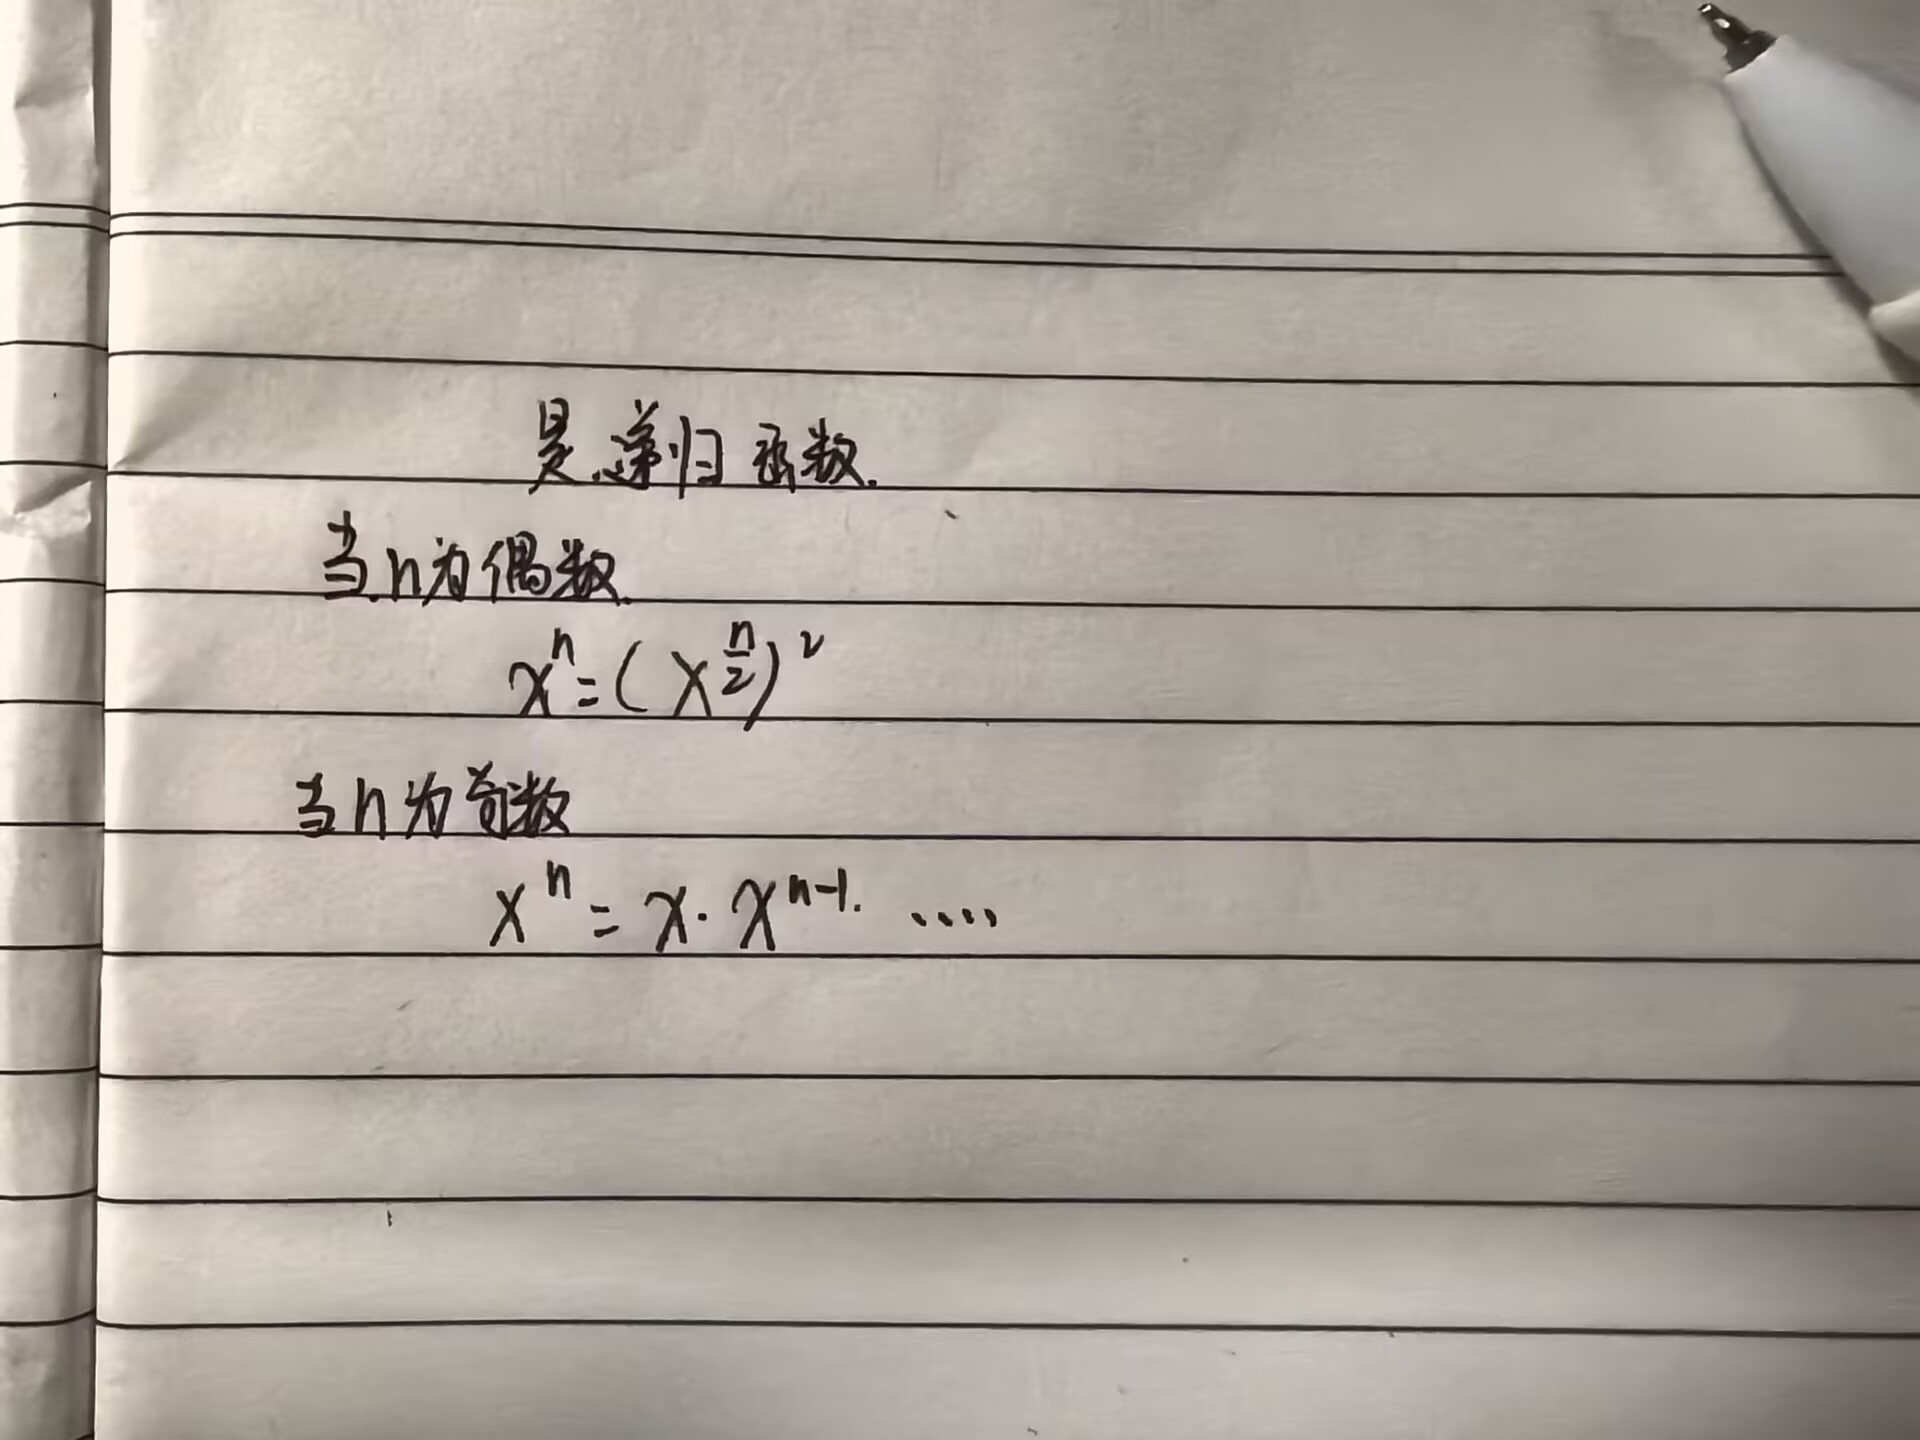 是递归函数.
当n为偶数.
xⁿ=(x^(n/2))²
当n为奇数
xⁿ = x·xⁿ⁻¹. ....